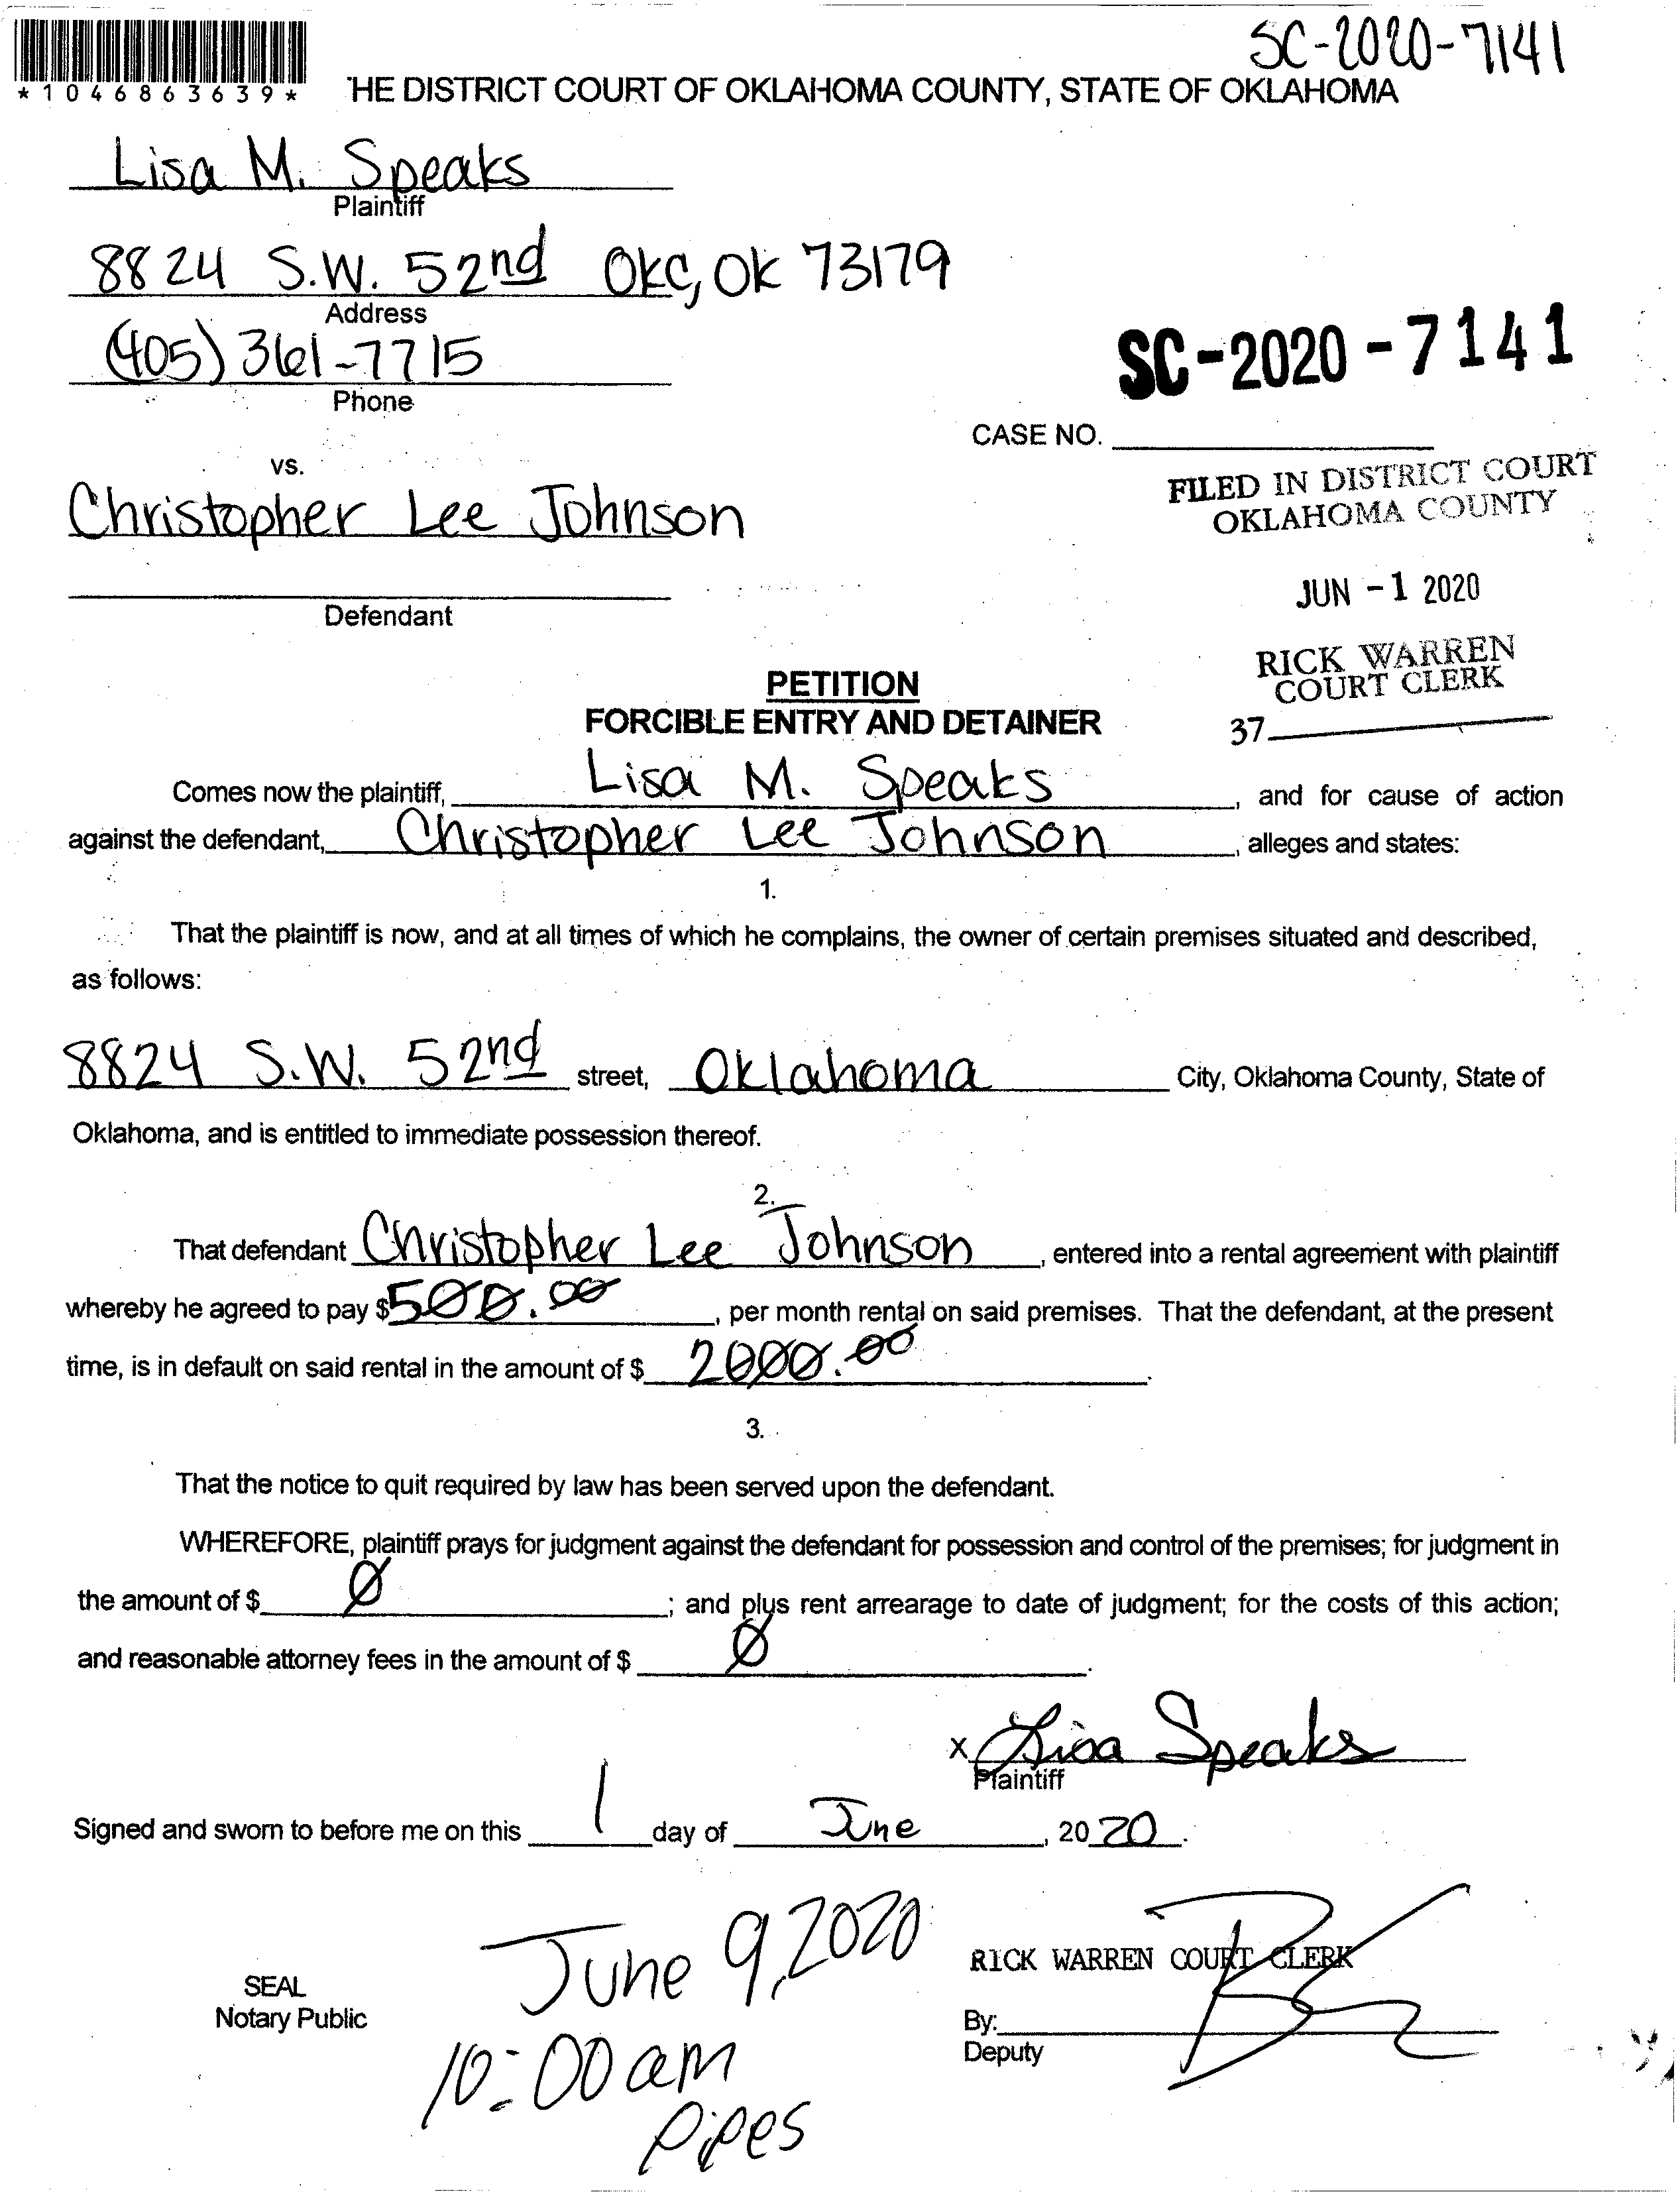 SC-2020-7141
*1046863639*
'HE DISTRICT COURT OF OKLAHOMA COUNTY, STATE OF OKLAHOMA
Lisa M. Speaks
Plaintiff
8824 S.W. 52nd OKC, OK 73179
Address
(405) 361-7715
Phone
SC-2020-7141
CASE NO.
vs.
FILED IN DISTRICT COURT
OKLAHOMA COUNTY
Christopher Lee Johnson
JUN -1 2020
Defendant
RICK WARREN
COURT CLERK
37
PETITION
FORCIBLE ENTRY AND DETAINER
Comes now the plaintiff, Lisa M. Speaks, and for cause of action
against the defendant, Christopher Lee Johnson, alleges and states:
1.
That the plaintiff is now, and at all times of which he complains, the owner of certain premises situated and described,
as follows:
8824 S.W. 52nd street, Oklahoma City, Oklahoma County, State of
Oklahoma, and is entitled to immediate possession thereof.
2.
That defendant Christopher Lee Johnson, entered into a rental agreement with plaintiff
whereby he agreed to pay $500.00, per month rental on said premises. That the defendant, at the present
time, is in default on said rental in the amount of $2000.00.
3.
That the notice to quit required by law has been served upon the defendant.
WHEREFORE, plaintiff prays for judgment against the defendant for possession and control of the premises; for judgment in
the amount of $ Ø; and plus rent arrearage to date of judgment; for the costs of this action;
and reasonable attorney fees in the amount of $ Ø.
x Lisa Speaks
Plaintiff
Signed and sworn to before me on this 1 day of June, 2020.
June 9, 2020
RICK WARREN COURT CLERK
SEAL
Notary Public
By:
Deputy
10:00 am
Pipes